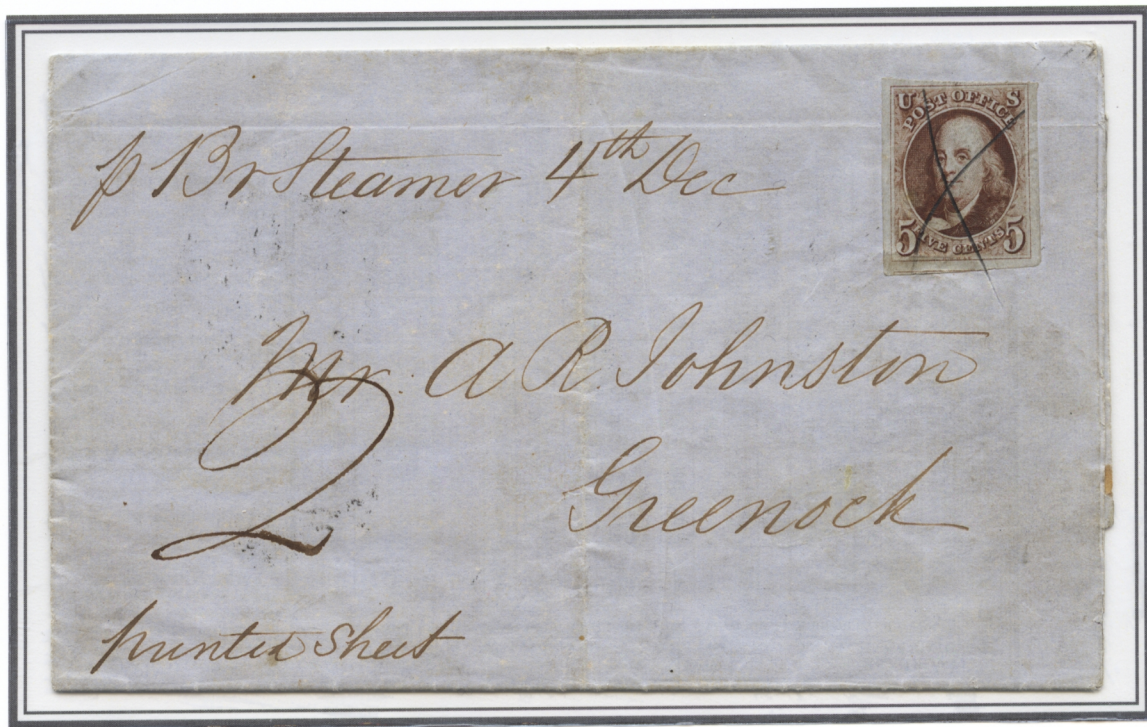 p Br Steamer 4th Dec
U S
POST OFFICE
5 FIVE CENTS 5
Mr. A R. Johnston
2
Greenock
printed Sheet